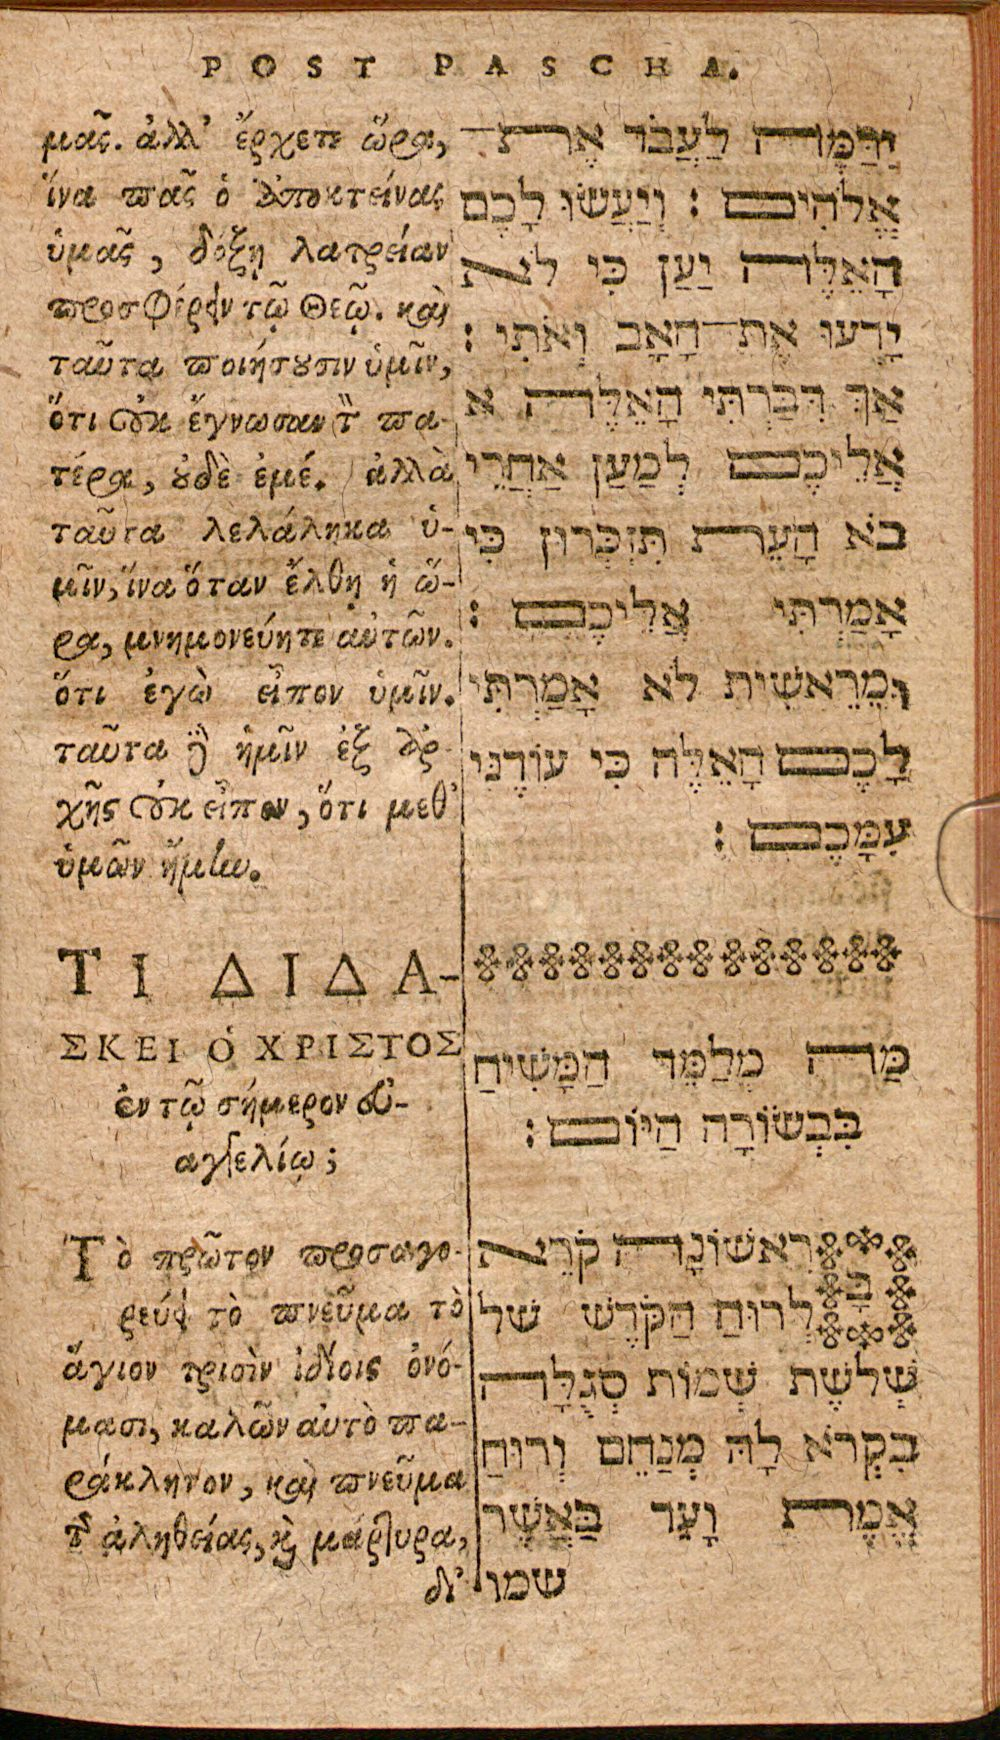 POST PASCHA.
μᾶς. ἀλλ' ἔρχεται ὥρα,
ἵνα πᾶς ὁ ἀποκτείνας
ὑμᾶς, δόξῃ λατρείαν
προσφέρειν τῷ Θεῷ. καὶ
ταῦτα ποιήσουσιν ὑμῖν,
ὅτι οὐκ ἔγνωσαν τὸν πα-
τέρα, οὐδὲ ἐμέ. ἀλλὰ
ταῦτα λελάληκα ὑ-
μῖν, ἵνα ὅταν ἔλθῃ ἡ ὥ-
ρα, μνημονεύητε αὐτῶν.
ὅτι ἐγὼ εἶπον ὑμῖν.
ταῦτα δὲ ἡμῖν ἐξ ἀρ
χῆς οὐκ εἶπον, ὅτι μεθ'
ὑμῶν ἤμην.
ΤΙ ΔΙΔΑ-
ΣΚΕΙ Ὁ ΧΡΙΣΤΟΣ
ἐν τῷ σήμερον εὐ-
αγγελίῳ;
Τὸ πρῶτον προσαγο-
ρεύει τὸ πνεῦμα τὸ
ἅγιον τρισὶν ἰδίοις ὀνό-
μασι, καλῶν αὐτὸ πα-
ράκλητον, καὶ πνεῦμα
τῆς ἀληθείας, καὶ μάρτυρα,
δι'
וְרַמָּה לַעֲבֹד אֶת־
אֱלֹהִים : וְיַעֲשׂוּ לָכֶם
הָאֵלֶּה יַעַן כִּי לֹא
יָדְעוּ אֶת־הָאָב וְאֹתִי :
אַךְ דִּבַּרְתִּי הָאֵלֶּה א
אֲלֵיכֶם לְמַעַן אַחֲרֵי
בֹא הָעֵת תִּזְכְּרוּן כִּי
אָמַרְתִּי אֲלֵיכֶם :
וּמֵרֵאשִׁית לֹא אָמַרְתִּי
לָכֶם הָאֵלֶּה כִּי עוֹדֶנִּי
עִמָּכֶם :
מַה מְלַמֵּד הַמָּשִׁיחַ
בִּבְשׂוֹרָה הַיּוֹם :
בָּ רִאשׁוֹנָה קֹרֵא
לְרוּחַ הַקֹּדֶשׁ שֶׁל
שְׁלֹשֶׁת שְׁמוֹת סְגֻלָּה
בִּקְרֹא לָהּ מְנַחֵם וְרוּחַ
אֱמֶת וָעֵד בַּאֲשֶׁר
שמו